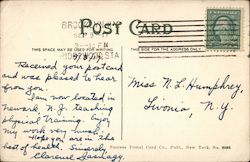 BROOKLYN, N.Y.
POST CARD
THIS SPACE MAY BE USED FOR WRITING.
THIS SIDE FOR THE ADDRESS ONLY.
9/8/19.
Received your postcard
and was pleased to hear
from you.
I'm now located in
Newark N.J. teaching
physical training. Enjoy
my work very much.
Hope you are in the
best of health. Sincerely,
Clarence
Miss N. L. Humphrey,
Livonia, N.Y.
Success Postal Card Co., Publ., New York, No.